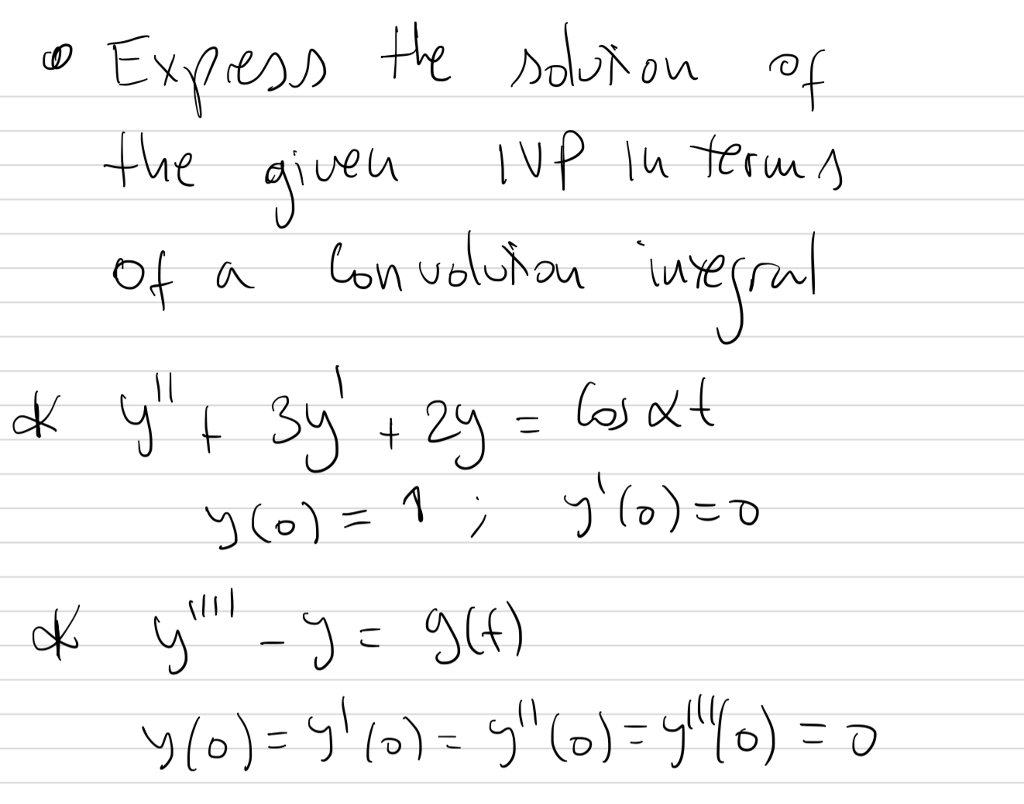 • Express the solution of
the given IVP in terms
of a Convolution integral
* y'' + 3y' + 2y = Cos αt
y(0) = 1 ; y'(0) = 0
* y'''' - y = g(t)
y(0) = y'(0) = y''(0) = y'''(0) = 0